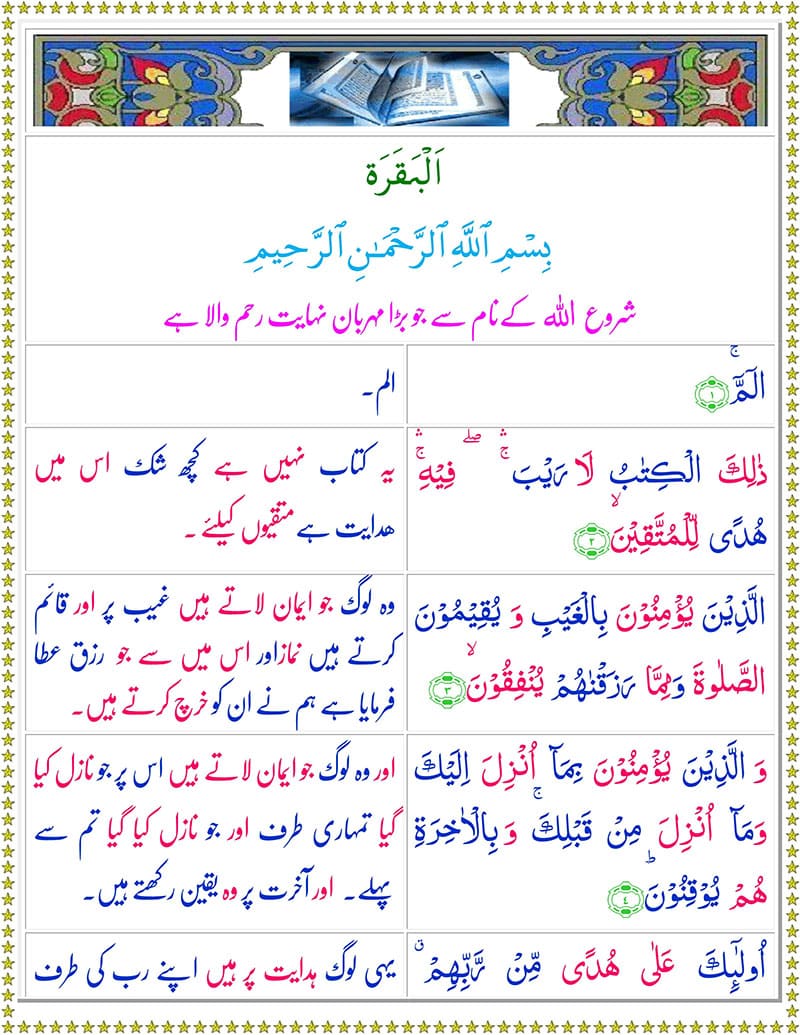 اَلْبَقَرَة
بِسْمِ ٱللَّهِ ٱلرَّحْمَـٰنِ ٱلرَّحِيمِ
شروع اللہ کے نام سے جو بڑا مہربان نہایت رحم والا ہے
الٓمّٓ ۚ ﴿١﴾
الم۔
ذٰلِكَ الْكِتٰبُ لَا رَيْبَ ۛۚ ۖ فِيْهِ ۛۚ
هُدًى لِّلْمُتَّقِيْنَ ۙ ﴿٢﴾
یہ کتاب نہیں ہے کچھ شک اس میں
ھدایت ہے متقیوں کیلئے ۔
الَّذِيْنَ يُؤْمِنُوْنَ بِالْغَيْبِ وَ يُقِيْمُوْنَ
الصَّلٰوةَ وَمِمَّا رَزَقْنٰهُمْ يُنْفِقُوْنَ ۙ ﴿٣﴾
وہ لوگ جو ایمان لاتے ہیں غیب پر اور قائم
کرتے ہیں نماز اور اس میں سے جو رزق عطا
فرمایا ہے ہم نے ان کو خرچ کرتے ہیں۔
وَ الَّذِيْنَ يُؤْمِنُوْنَ بِمَآ اُنْزِلَ اِلَيْكَ
وَمَآ اُنْزِلَ مِنْ قَبْلِكَ ۚ وَ بِالْاٰخِرَةِ
هُمْ يُوْقِنُوْنَ ؕ ﴿٤﴾
اور وہ لوگ جو ایمان لاتے ہیں اس پر جو نازل کیا
گیا تمہاری طرف اور جو نازل کیا گیا تم سے
پہلے۔ اور آخرت پر وہ یقین رکھتے ہیں۔
اُولٰٓئِكَ عَلٰى هُدًى مِّنْ رَّبِّهِمْ ۗ
یہی لوگ ہدایت پر ہیں اپنے رب کی طرف